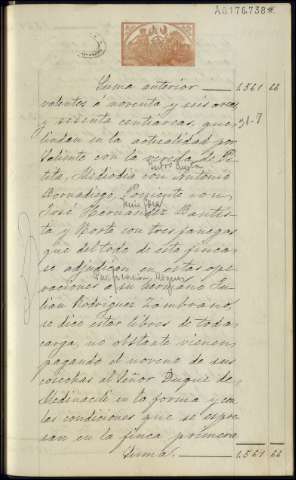 A0176738*
Suma anterior 1.561 66
valentes á noventa y seis areas
y sesenta centiareas, que
lindan en la actualidad por
Saliente con la vereda de
tila, Mediodia con Antonio
Bornadiego, Poniente con
José Hernandez Bautis-
ta y Norte con tres fanegas
que del todo de esta finca
se adjudican en estas ope-
raciones a su hermano Ju-
lian Rodriguez Zambrano,
se dice estar libres de toda
carga, no obstante vienen
pagando el noveno de sus
cosechas al Señor Duque de
Medinaceli en la forma y con
las condiciones que se expre-
san en la finca primera
Suma 1.561 66